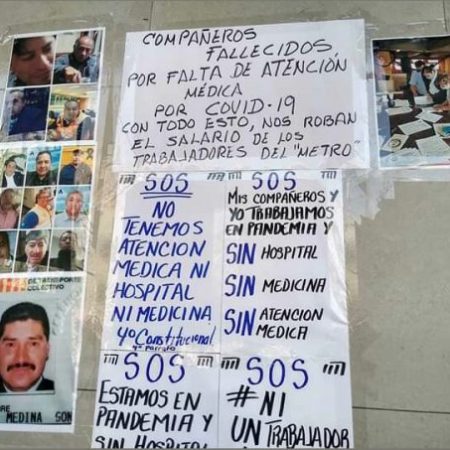 COMPAÑEROS
FALLECIDOS,
POR FALTA DE ATENCIÓN
MÉDICA
POR COVID-19
CON TODO ESTO, NOS ROBAN
EL SALARIO DE LOS
TRABAJADORES DEL "METRO"
SOS
NO
TENEMOS
ATENCION
MEDICA NI
HOSPITAL
NI MEDICINA
4º Constitucional
4º Parrafo
SOS
MIS COMPAÑEROS Y
YO TRABAJAMOS
EN PANDEMIA Y
SIN HOSPITAL
SIN MEDICINA
SIN ATENCION
MEDICA
SOS
ESTAMOS EN
PANDEMIA Y
SIN HOSPITAL
SOS
#NI
UN TRABAJADOR
DE TRANSPORTE
COLECTIVO
BRE
MEDINA SON